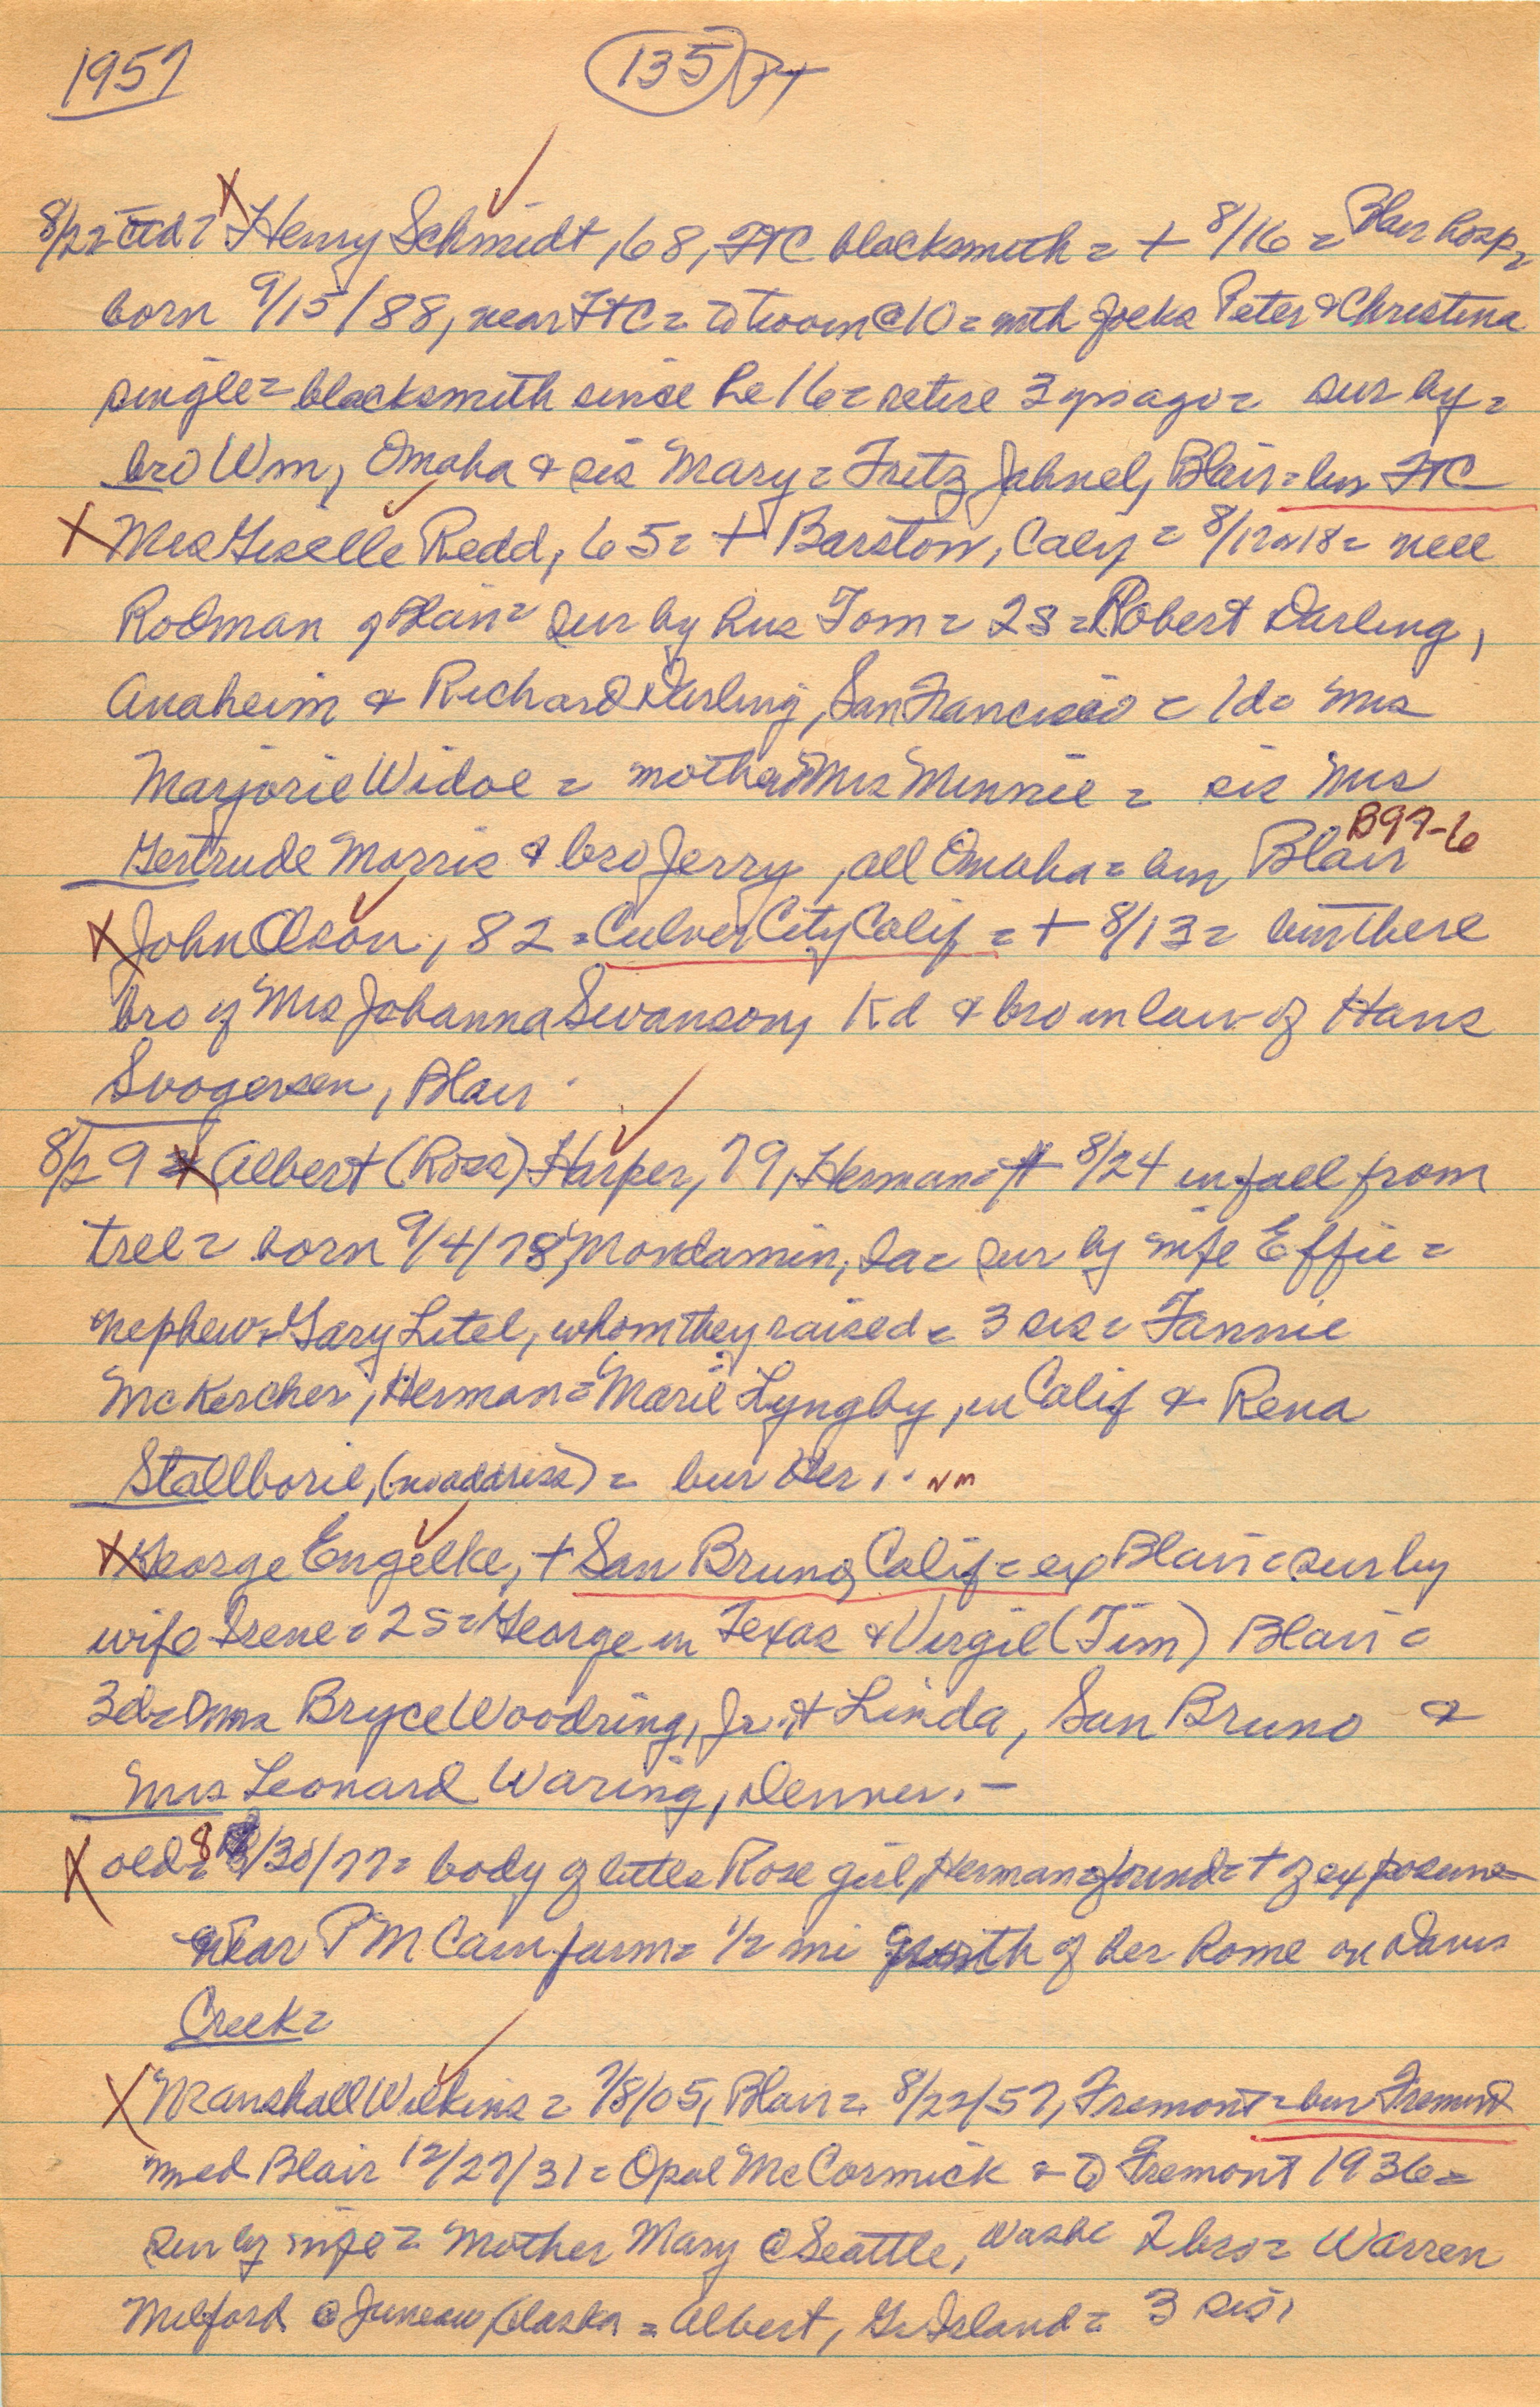 1957 135 PT
8/22 Ctd = Henry Schmidt, 68, FTC blacksmith = + 8/16 = Blair hosp =
born 9/15/88, near FTC = to town @ 10 = with folks Peter & Christina
single = blacksmith since he 16 = retire 3 yrs ago = sur by =
bro Wm, Omaha & sis Mary = Fritz Jahnel, Blair = bur FTC
X Mrs Giselle Redd, 65 = + Barston, Caly = 8/17 or 18 = nee
Rodman of Blair = sur by hus Tom = 2s = Robert Darling,
Anaheim & Richard Darling, San Francisco = 1d = Mrs
Marjorie Widoe = mother Mrs Minnie = sis Mrs
Gertrude Morris & bro Jerry, all Omaha = bur Blair B97-6
X John Olson, 82 = Culver City Calif = + 8/13 = bur there
bro of Mrs Johanna Swanson, Kd & bro in law of Hans
Svogersen, Blair
8/29 = X Albert (Ross) Harper, 79, Herman = + 8/24 in fall from
tree = born 9/4/78, Mondamin, Ia = sur by wife Effie =
nephew = Gary Litel, whom they raised = 3 sis = Fannie
McKercher, Herman = Marie Lyngby, in Calif & Rena
Stallborie, (no address) = bur Her. NM
X George Engelke, + San Bruno, Calif = ex Blair = sur by
wife Irene = 2s = George in Texas & Virgil (Tim) Blair =
3d = Mrs Bryce Woodring, Jr. & Linda, San Bruno &
Mrs Leonard Waring, Denver. -
X old = 8/30/77 = body of little Rose girl, Herman = found = + of exposure =
near PM Cain farm = 1/2 mi north of her home on Davis
Creek =
X Marshall Wilkins = 7/8/05, Blair = 8/22/57, Fremont = bur Fremont
med Blair 12/27/31 = Opal McCormick = to Fremont 1936 =
sur by wife = Mother Mary @ Seattle, Wash = 2 bro = Warren
Milford @ Juneau, Alaska = Albert, G. Island = 3 sis,